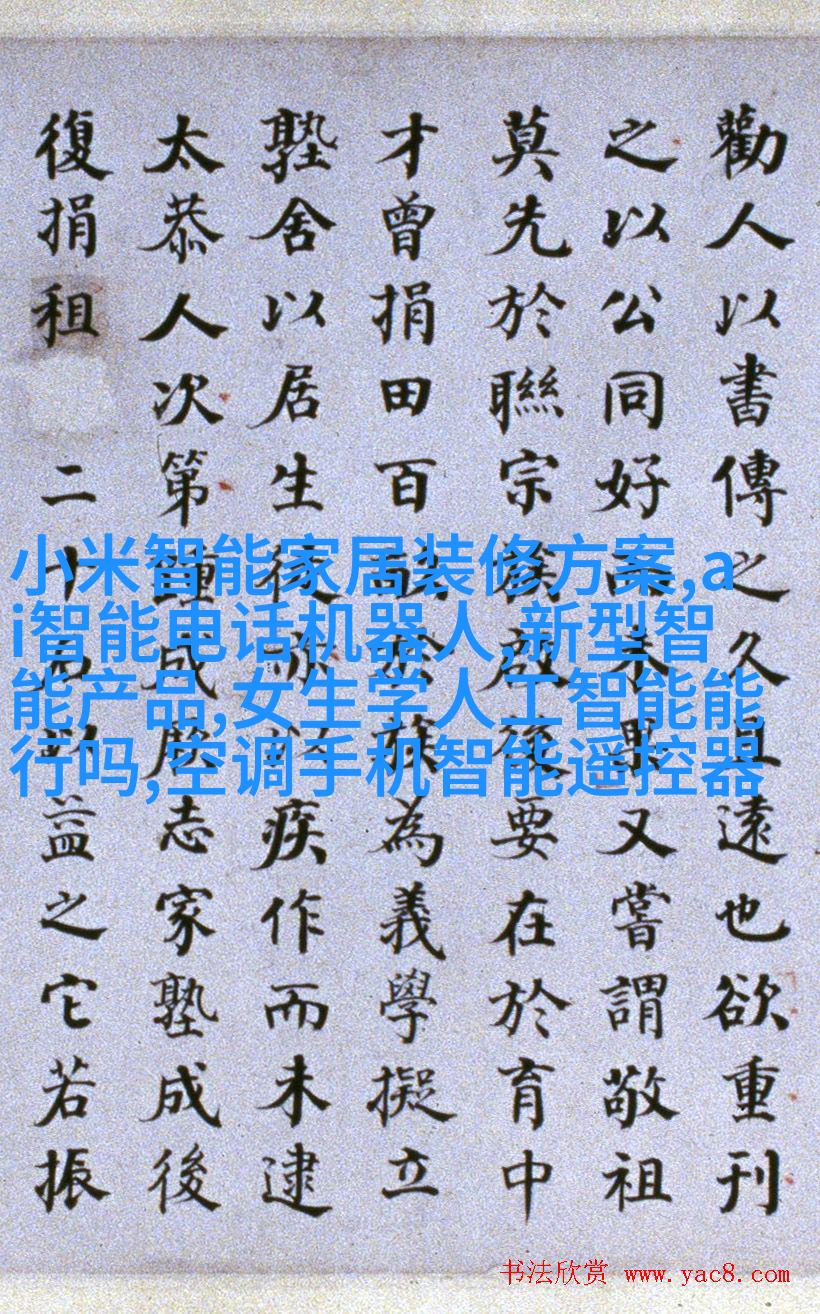 勸人以書傳之久且遠也欲重刊
之以公同好而未果又嘗謂敬祖
莫先於聯宗族啟後要在於育中
才曾捐田百畝族為義學擬立
塾舍以居生徒以疾作而未逮
太恭人次第踵成厥志家塾成後
復捐租二十石以益之它若振
小米智能家居装修方案,a
i智能电话机器人,新型智
能产品,女生学人工智能能
行吗,空调手机智能遥控器
书法欣赏 www.yac8.com